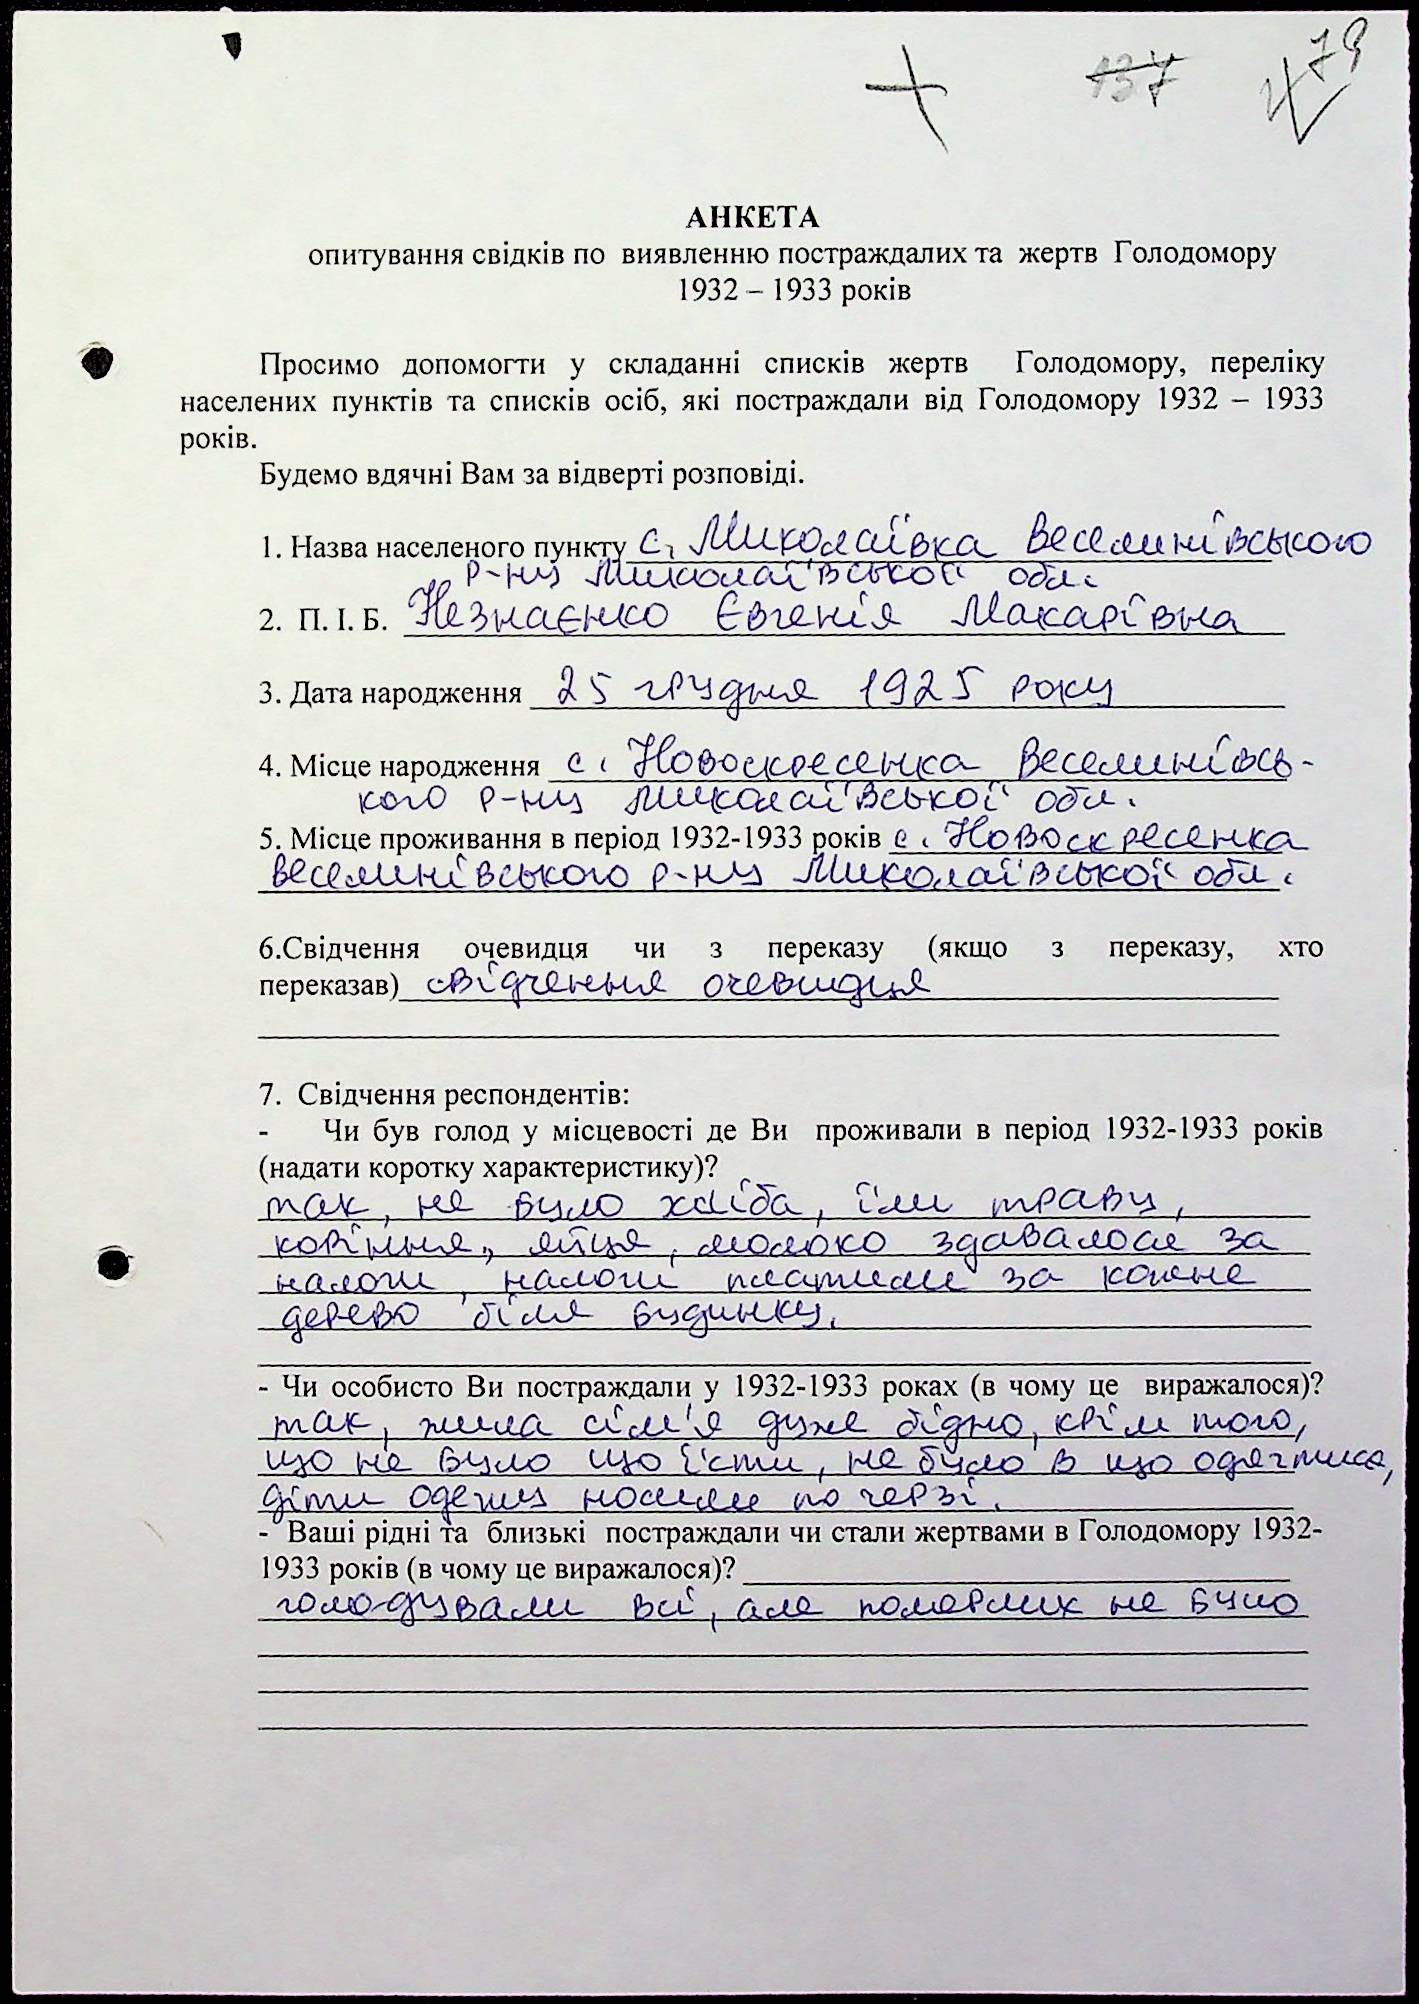 137
79
АНКЕТА
опитування свідків по виявленню постраждалих та жертв Голодомору
1932 – 1933 років
Просимо допомогти у складанні списків жертв Голодомору, переліку
населених пунктів та списків осіб, які постраждали від Голодомору 1932 – 1933
років.
Будемо вдячні Вам за відверті розповіді.
1. Назва населеного пункту с. Миколаївка Веселинівського
р-ну Миколаївської обл.
2. П. І. Б. Незнаєнко Євгенія Макарівна
3. Дата народження 25 грудня 1925 року
4. Місце народження с. Новоскресенка Веселинівсь-
кого р-ну Миколаївської обл.
5. Місце проживання в період 1932-1933 років с. Новоскресенка
Веселинівського р-ну Миколаївської обл.
6.Свідчення очевидця чи з переказу (якщо з переказу, хто
переказав) свідчення очевидця
7. Свідчення респондентів:
- Чи був голод у місцевості де Ви проживали в період 1932-1933 років
(надати коротку характеристику)?
так, не було хліба, їли траву,
коріння, яйця, молоко здавалося за
налоги, налоги платили за кожне
дерево біля будинку.
- Чи особисто Ви постраждали у 1932-1933 роках (в чому це виражалося)?
так, жила сім'я дуже бідно, крім того,
що не було що їсти, не було в що одягтися,
діти одежу носили по черзі.
- Ваші рідні та близькі постраждали чи стали жертвами в Голодомору 1932-
1933 років (в чому це виражалося)?
голодували всі, але померлих не було